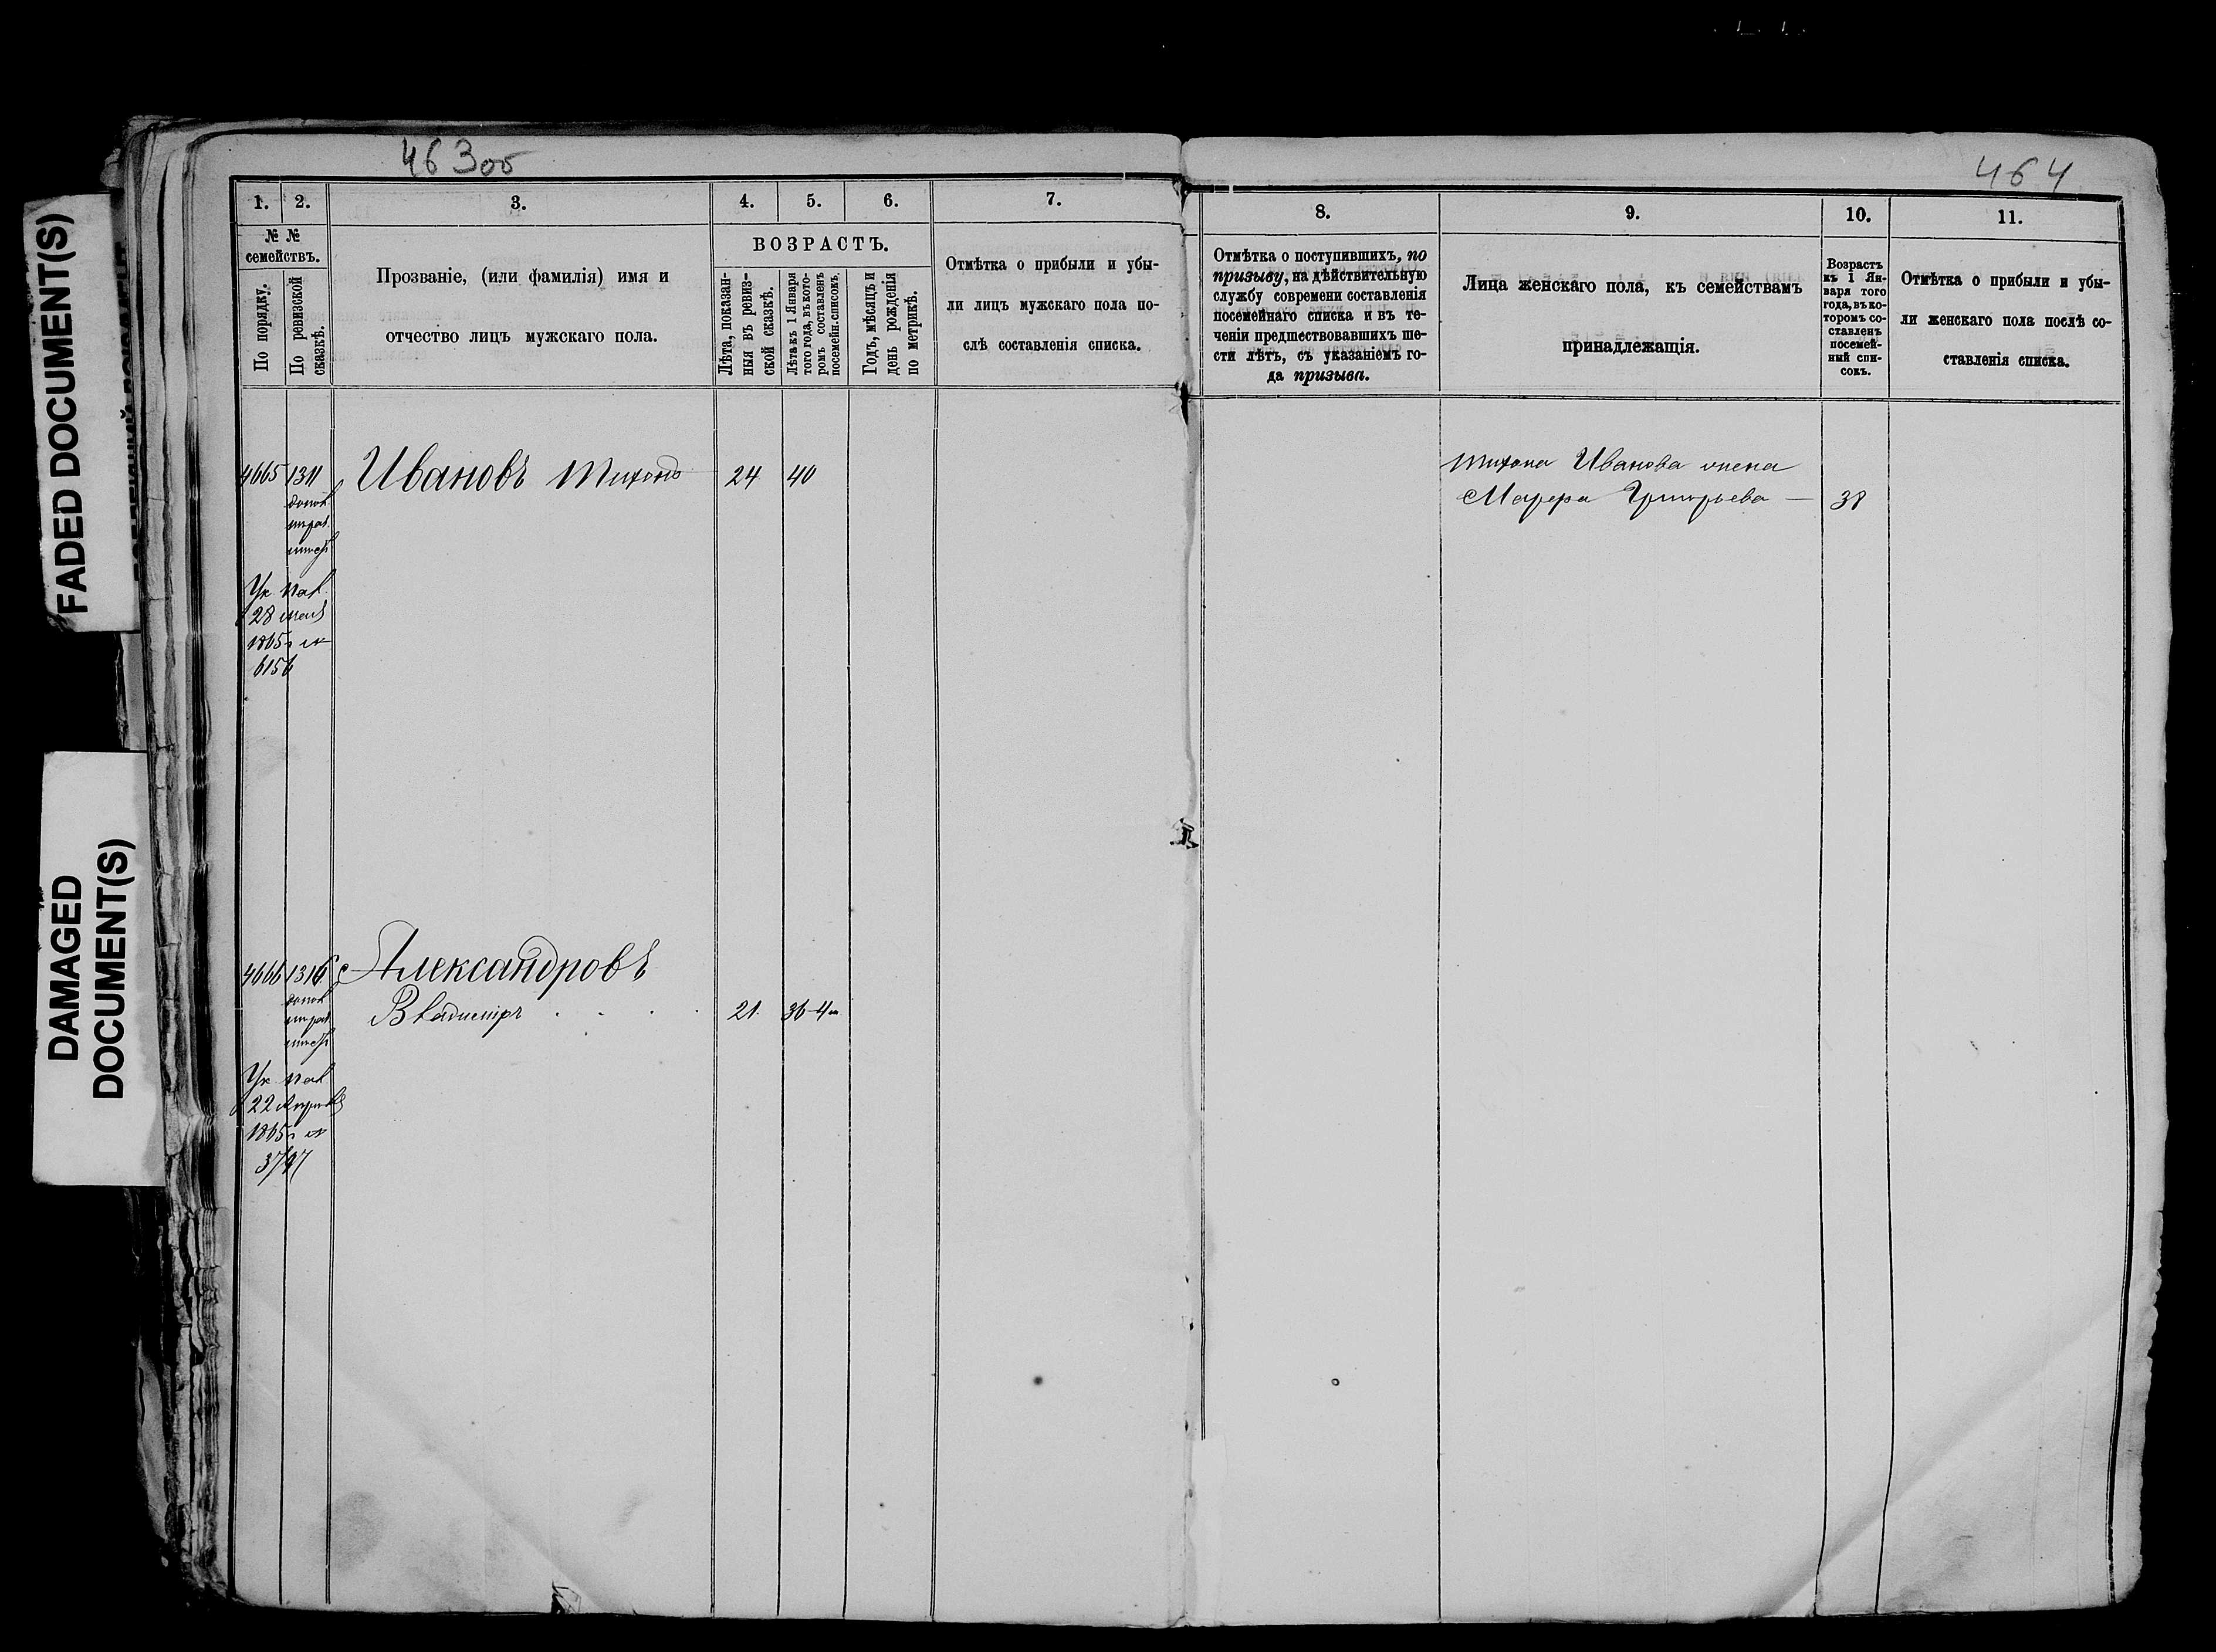 463об
464
FADED DOCUMENT(S)
DAMAGED
DOCUMENT(S)
1. 2. 3. 4. 5. 6. 7.
№ №
семействъ.
По порядку.
По ревизской
сказкѣ.
Прозваніе, (или фамилія) имя и
отчество лицъ мужскаго пола.
ВОЗРАСТЪ.
Лѣта, показан-
ныя въ ревиз-
ской сказкѣ.
Лѣта къ 1 Января
того года, въ кото-
ромъ составленъ
посемейн. списокъ.
Годъ, мѣсяцъ и
день рожденія
по метрикѣ.
Отмѣтка о прибыли и убы-
ли лицъ мужскаго пола по-
слѣ составленія списка.
8. 9. 10. 11.
Отмѣтка о поступившихъ, по
призыву, на дѣйствительную
службу современи составленія
посемейнаго списка и въ те-
ченіи предшествовавшихъ ше-
сти лѣтъ, съ указаніемъ го-
да призыва.
Лица женскаго пола, къ семействамъ
принадлежащія.
Возрастъ
къ 1 Ян-
варя того
года, въ ко-
торомъ со-
ставленъ
посемей-
ный спи-
сокъ.
Отмѣтка о прибыли и убы-
ли женскаго пола послѣ со-
ставленія списка.
4665 1311 Ивановъ Тихонъ 24 40
Ук. Пал.
28
1865г №
6156
Тихона Иванова жена
Марфа Григорьева — 38
4666 1316 Александровъ
Владиміръ 21. 36-4м
Ук. Пал.
22 Апрѣля
1865г №
3797